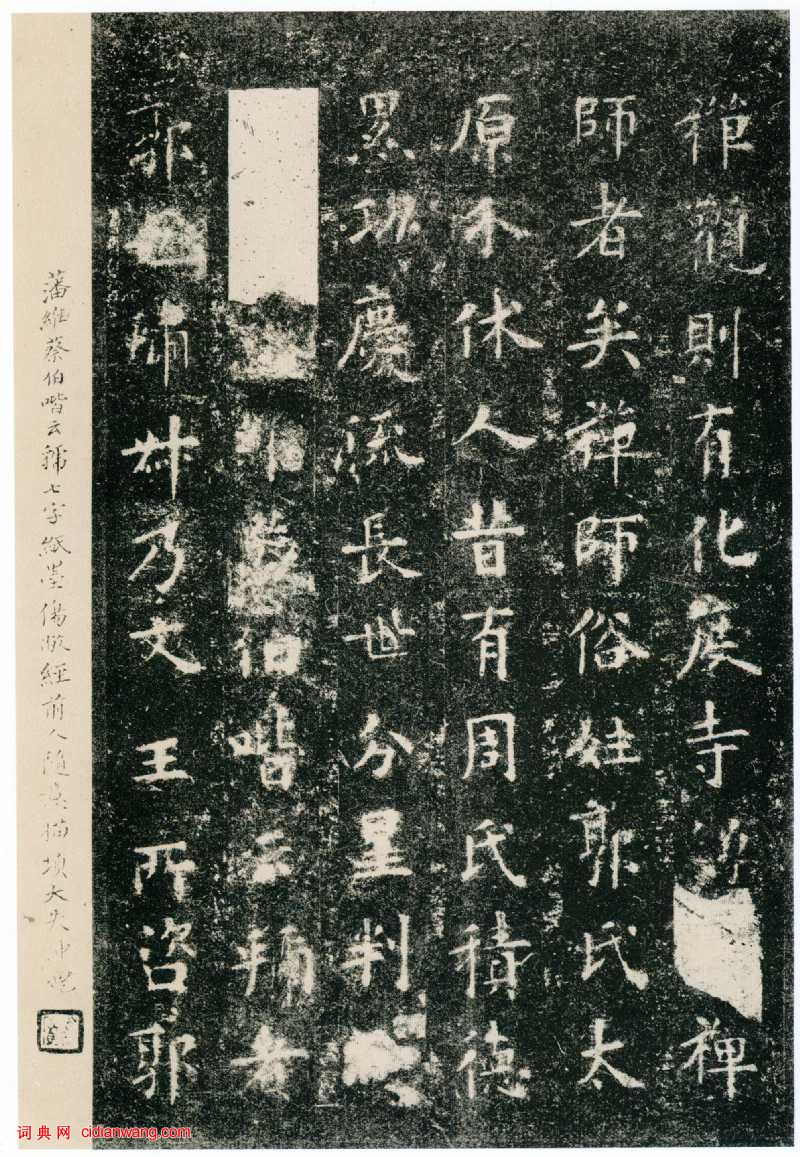 禪觀則有化度寺僧禪
師者矣禪師俗姓郭氏太
原介休人昔有周氏積德
累功慶流長世分星判
蔡伯喈云虢者
郭虢叔乃文王所咨郭
藩維蔡伯喈云虢七字紙墨傷敝經前人隨意描填大失神
词典网 cidianwang.com